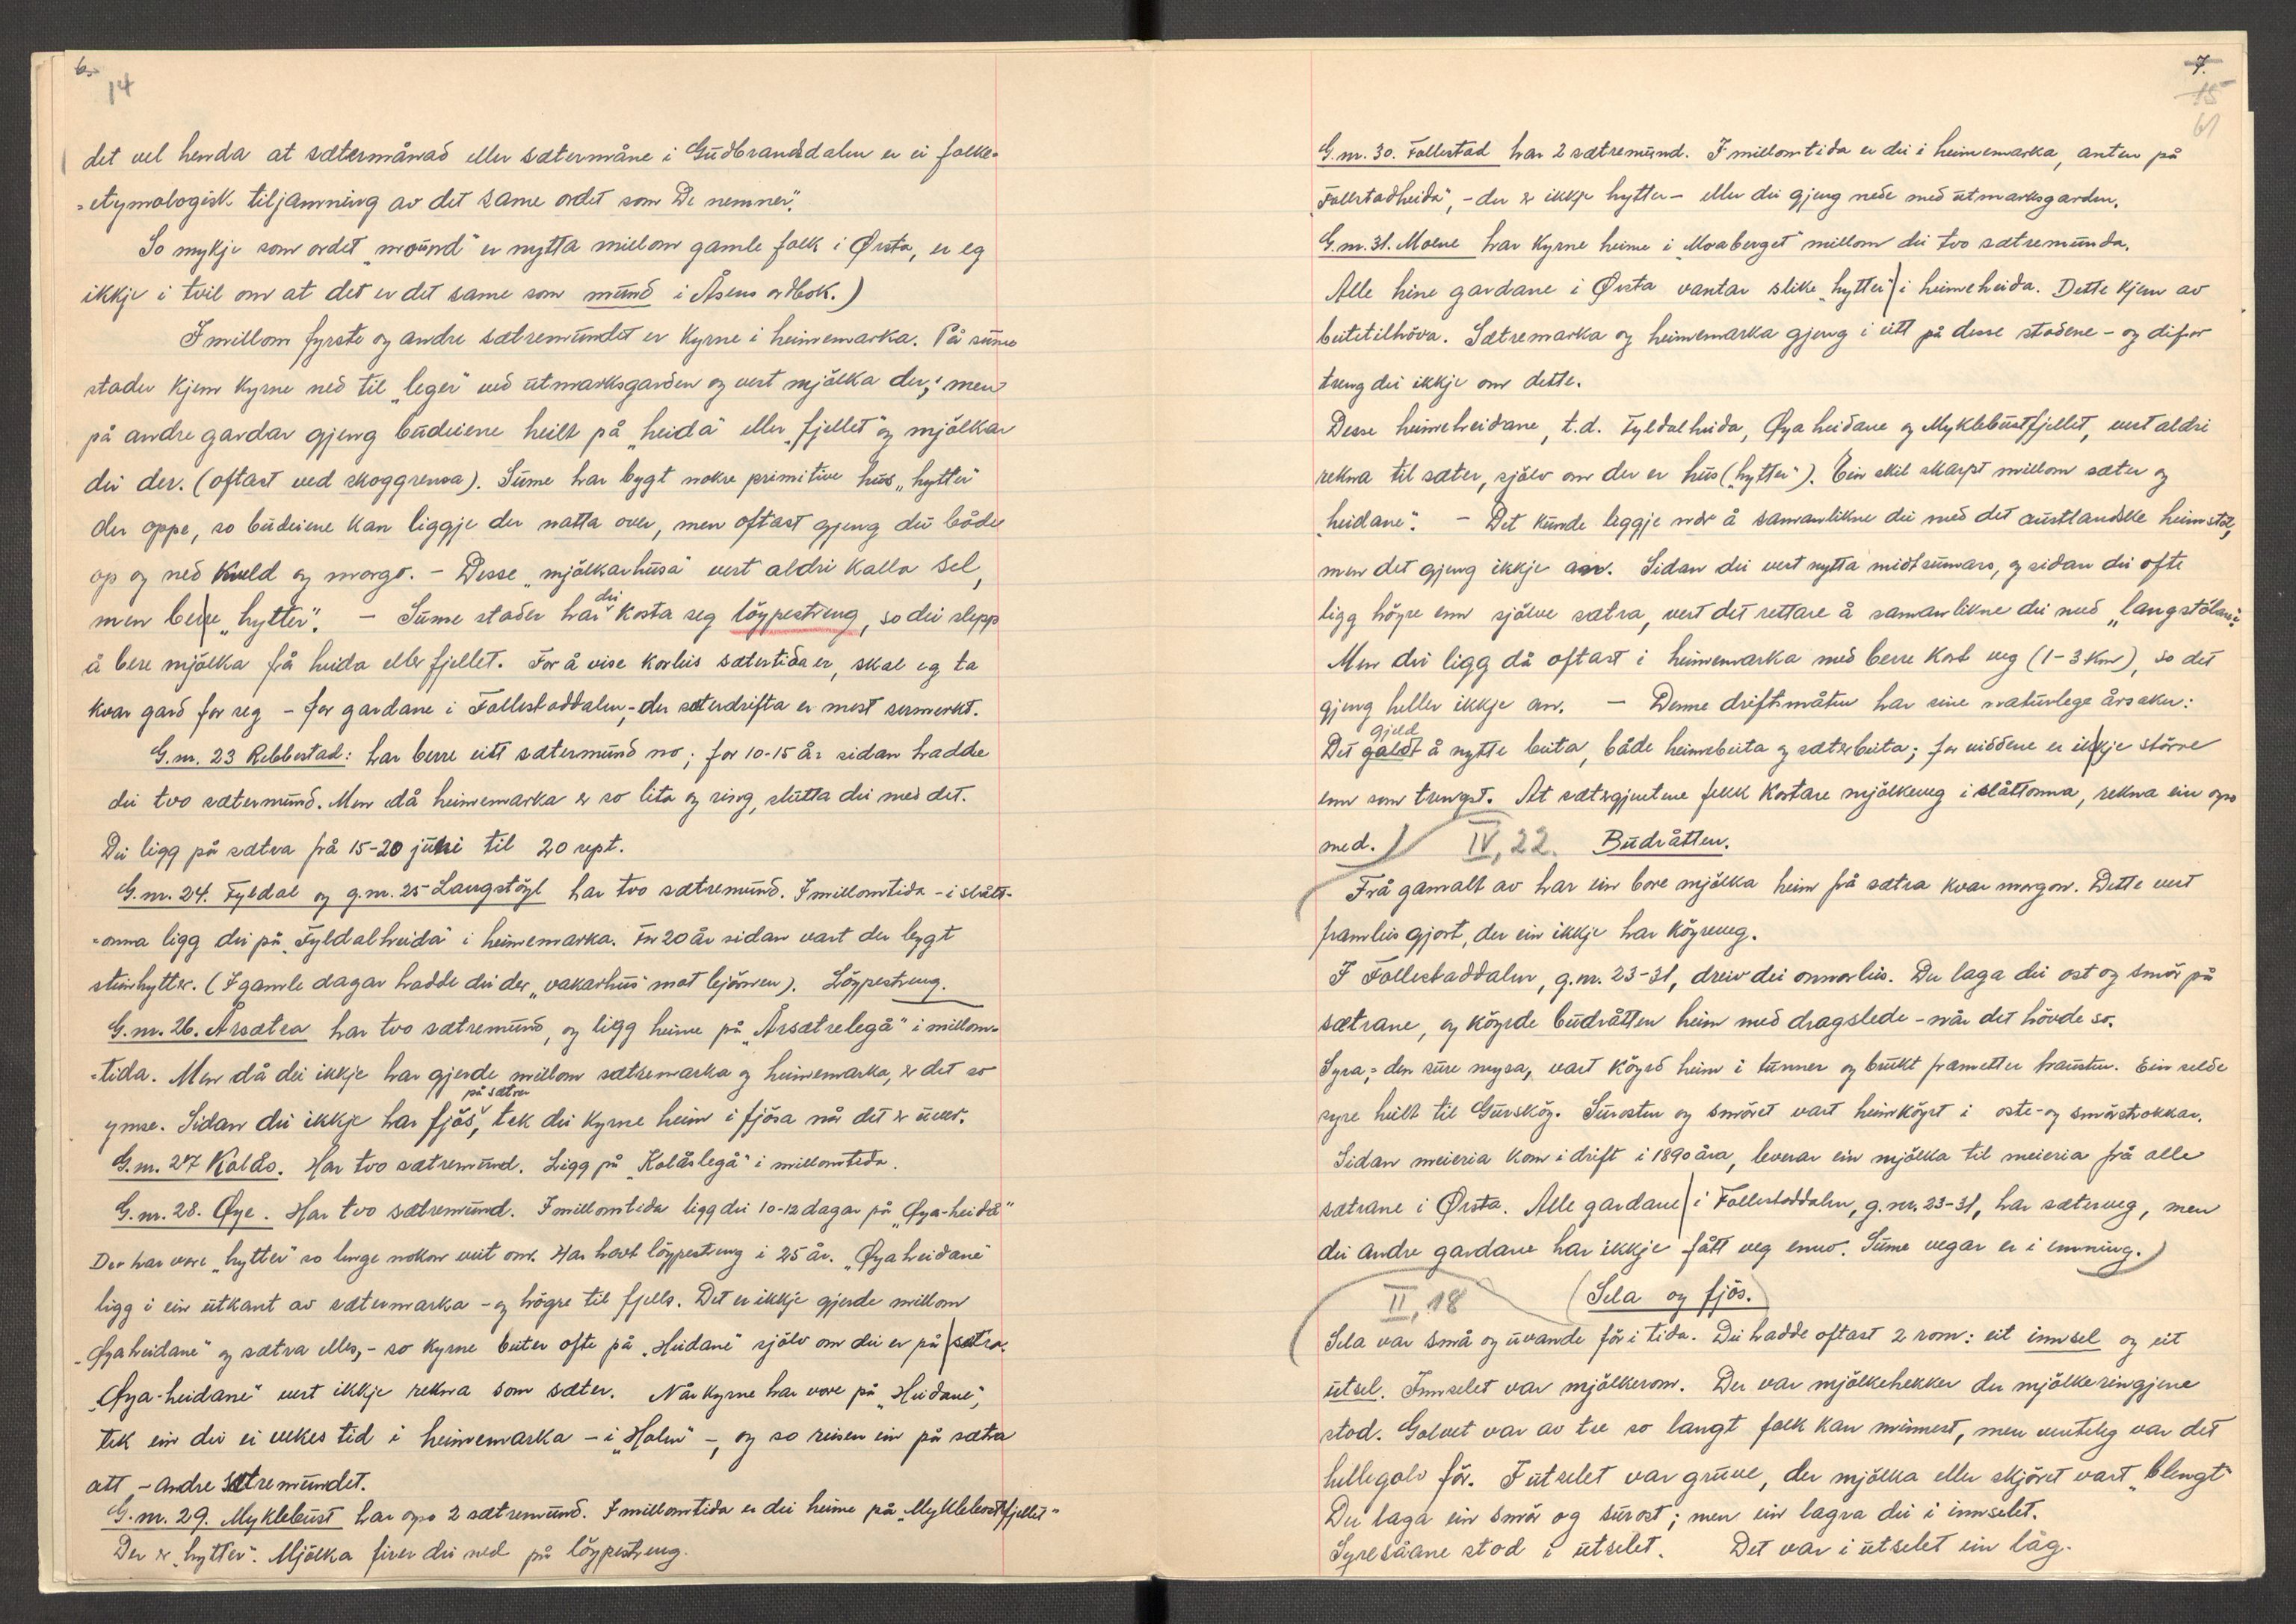 6.
14
det vel henda at sætermånad eller sætermåne i Gudbrandsdalen er ei folke=
=etymologisk tiljamning av det same ordet som De nemner".
So mykje som ordet „mound" er nytta millom gamle folk i Ørsta, er eg
ikkje i tvil om at det er det same som mund i Åsens ordbok.)
I millom fyrste og andre sætremundet er kyrne i heimemarka. På sume
stader kjem kyrne ned til „leger" ved utmarksgarden og vert mjølka der; men
på andre gardar gjeng budeiene heilt på „heida" eller „fjellet" og mjølkar
dei der. (oftast ved skoggrensa). Sume har bygt nokre primitive hus „hytter"
der oppe, so budeiene kan liggje der natta over, men oftast gjeng dei både
op og ned kveld og morgo. - Desse „mjølkarhusa" vert aldri kalla sel,
men berre „hytter". - Sume stader har dei kosta seg løypestreng, so dei slepp
å bere mjølka frå heida eller fjellet. For å vise korleis sætertida er, skal eg ta
kvar gard for seg - for gardane i Follestaddalen, - der sæterdrifta er mest sermerkt.
G.nr. 23 Rebbestad: har berre eitt sætermund no; for 10-15 år sidan hadde
dei two sætermund. Men då heimemarka er so lita og ring, slutta dei med det.
Dei ligg på sætra frå 15-20 juni til 20 sept.
G.nr. 24. Fyldal og g.nr. 25 Langstøyl har tvo sætremund. I millomtida - i slått-
=onna ligg dei på „Fyldalheida" i heimemarka. For 20 år sidan vart der bygt
steinhytter. (I gamle dagar hadde dei der „vakarhus" mot bjørnen). Løypestreng.
G.nr. 26. Årsætra har tvo sætremund, og ligg heime på „Årsætrelega" i millom=
=tida. Men då dei ikkje har gjerde millom sætremarka og heimemarka, er det so
ymse. Sidan dei ikkje har fjøs på sætra, tek dei kyrne heim i fjøsa når det er uver.
G.nr. 27 Kolås. Har tvo sætremund. Ligg på „Kolåslega" i millomtida.
G.nr. 28. Øye. Har tvo sætremund. I millomtida ligg dei 10-12 dagar på „Øya-heida"
Der har vore „hytter" so lenge nokon veit om. Har havt løypestreng i 25 år. „Øyaheidane"
ligg i ein utkant av sætermarka - og høgre til fjells. Det er ikkje gjerde millom
„Øyaheidane" og sætra elles, - so kyrne beiter ofte på „Heidane" sjølv om dei er på sætra.
„Øya-heidane" vert ikkje rekna som sæter. Når kyrne har vore på „Heidane",
tek ein dei ei vekes tid i heimemarka - i „Holen" -, og so reiser ein på sætra
att - andre sætremundet.
G.nr. 29. Myklebust har òg 2 sætremund. I millomtida er dei heime på „Myklebustfjellet"
Der er „hytter". Mjølka firer dei ned på løypestreng.
7.
15
61
G.nr. 30. Follestad har 2 sætremund. I millomtida er dei i heimemarka, anten på
„Follestadheida", - der er ikkje hytter - eller dei gjeng nede med utmarksgarden.
G.nr. 31. Moene har kyrne heime i „Moaberget" millom dei tvo sætremunda.
Alle hine gardane i Ørsta vantar slike „hytter" i heimeheida. Dette kjem av
beitetilhøva. Sætremarka og heimemarka gjeng i eitt på desse stadene - og difor
treng dei ikkje om dette.
Desse heimeheidane, t.d. Fyldalheida, Øyaheidane og Myklebustfjellet, vert aldri
rekna til sæter, sjølv om der er hus („hytter"). Ein skil skarpt millom sæter og
„heidane". - Det kunde leggje nær å samanlikne dei med det austlandske heimstøl,
men det gjeng ikkje an. Sidan dei vert nytta midtsumars, og sidan dei ofte
ligg høgre enn sjølve sætra, vert det rettare å samanlikne dei med „langstølane".
Men dei ligg då oftast i heimemarka med berre kort veg (1-3 km), so det
gjeng heller ikkje an. - Denne driftsmåten har sine naturlege årsaker:
Det gjeld å nytte beita, både heimebeita og sæterbeita; for viddene er ikkje større
enn som trengst. At sætergjentene fekk kortare mjølkeveg i slåttonna, rekna ein òg
med.) IV, 22. Budråtten.
Frå gamalt av har ein bore mjølka heim frå sætra kvar morgon. Dette vert
framleis gjort, der ein ikkje har køyreveg.
I Follestaddalen, g.nr. 23-31, dreiv dei onnorleis. Der laga dei ost og smør på
sætrane, og køyrde budråtten heim med dragslede - når det høvde so.
Syra, = den sure mysa, vart køyrd heim i tunner og brukt frametter hausten. Ein selde
syre heilt til Gurskøy. Surosten og smøret vart heimkøyrt i oste- og smørstrokkar.
Sidan meieria kom i drift i 1890 åra, leverar ein mjølka til meieria frå alle
sætrane i Ørsta. Alle gardane i Follestaddalen, g.nr. 23-31, har sæterveg, men
dei andre gardane har ikkje fått veg enno. Sume vegar er i emning.)
II, 18 (Sela og fjøs.
Sela var små og uvande før i tida. Dei hadde oftast 2 rom: eit innsel og eit
utsel. Innselet var mjølkerom. Der var mjølkehekker der mjølkeringjene
stod. Golvet var av tre so langt folk kan minnest, men venteleg var det
hellegolv før. I utselet var gruve, der mjølka eller skjøret vart „blengt"
Der laga ein smør og surost; men ein lagra dei i innselet.
Syresåane stod i utselet. Det var i utselet ein låg.